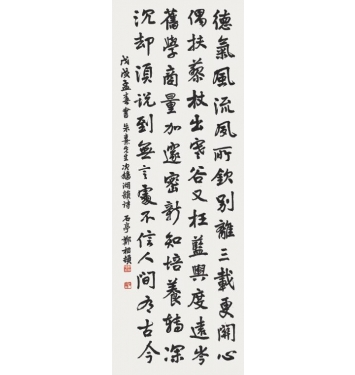 德氣風流夙所欽別離三載更開心
偶扶藜杖出寒谷又枉藍輿度遠岑
舊學商量加邃密新知培養轉深
沉却須說到無言處不信人間有古今
戊戌孟春書朱熹先生次鵝湖韻詩 石亭鄭